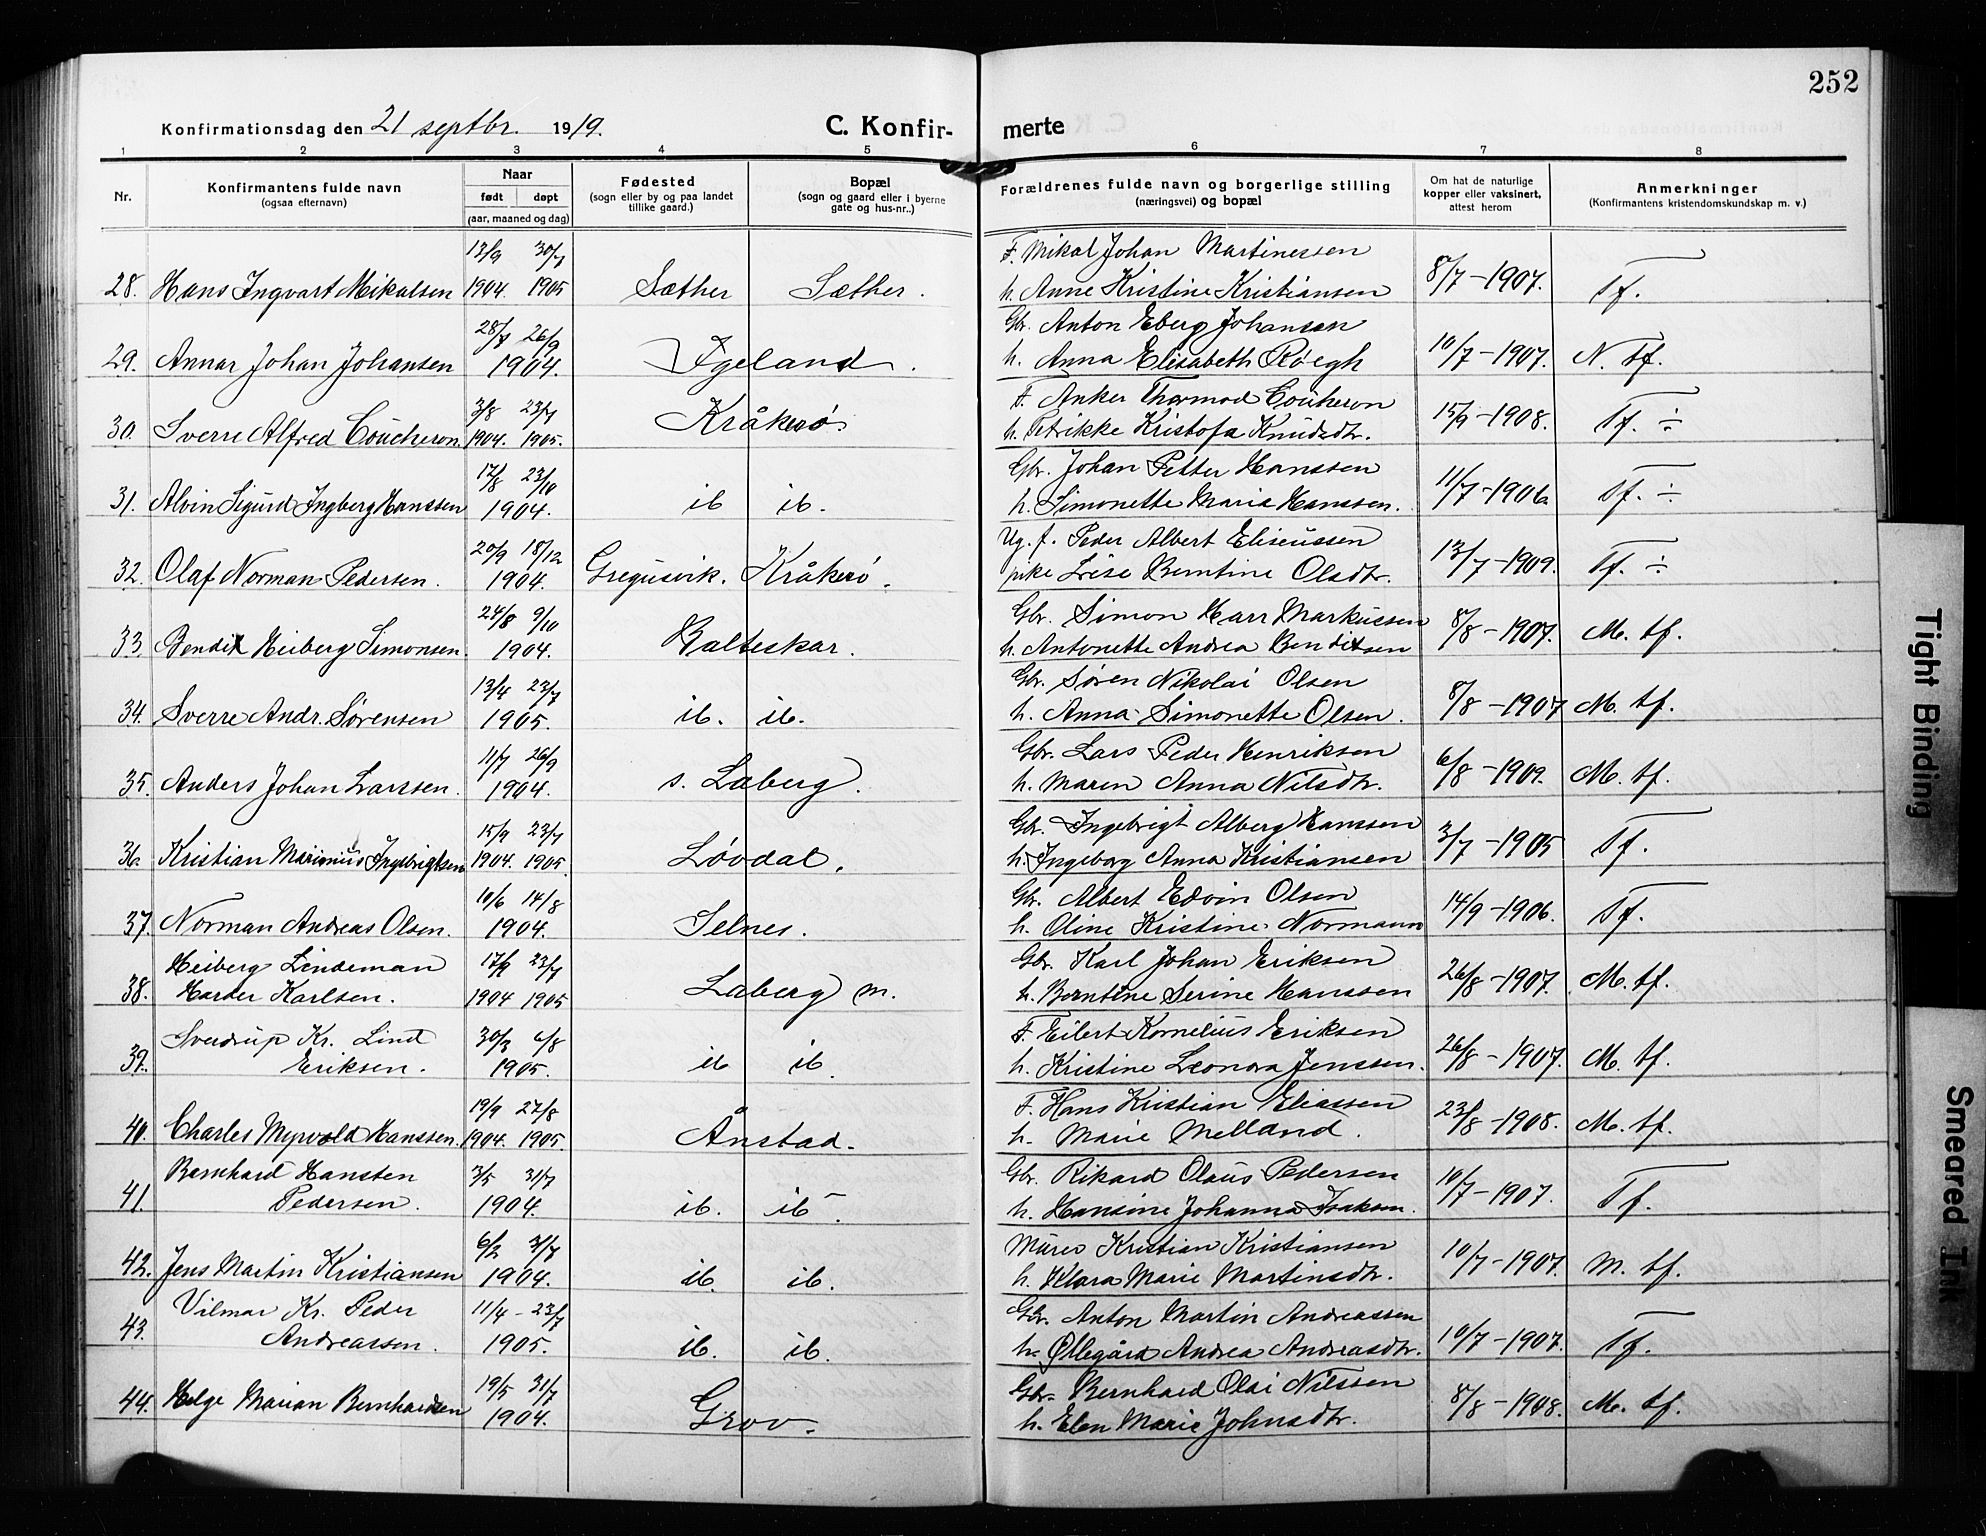 252
Konfirmationsdag den 21 septbr. 1919.
C. Konfir- merte
1 2 3 4 5 6 7 8
Nr.
Konfirmantens fulde navn
(ogsaa efternavn)
Naar
født døpt
(aar, maaned og dag)
Fødested
(sogn eller by og paa landet
tillike gaard.)
Bopæl
(sogn og gaard eller i byerne
gate og hus-nr..)
Forældrenes fulde navn og borgerlige stilling
(næringsvei) og bopæl
Om hat de naturlige
kopper eller vaksinert,
attest herom
Anmerkninger
(Konfirmantens kristendomskundskap m. v.)
13/9 30/7 F. Mikal Johan Martinessen
28. Hans Ingvart Mikalsen 1904. 1905 Sæther Sæther. h. Anne Kristine Kristiansen 8/7-1907. Tf.
28/7 26/9 Gbr. Anton Eberg Johansen
29. Annar Johan Johansen 1904. Igeland. h. Anna Elisabeth Røegh 10/7-1907. N. tf.
3/8 23/7 Kråkerø. F. Anker Thormod Coucheron
30. Sverre Alfred Coucheron. 1904. 1905. h. Petrikke Kristofa Knudsdtr. 15/9-1908. Tf. ÷
17/8 23/10 Gbr. Johan Petter Hanssen
31. Alvin Sigurd Ingberg Hanssen 1904. ib ib. h. Simonette Marie Hanssen. 11/7-1906. Tf. ÷
20/9 18/12 Ug. f. Peder Albert Eliseussen
32. Olaf Norman Pedersen. 1904. Gregusvik. Kråkerø. pike Lise Berntine Olsdtr. 13/7-1909. Tf. ÷
24/8 9/10 Gbr. Simon Harr Markussen
33. Bendix Heiberg Simonsen. 1904. Balteskar. h. Antonette Andrea Bendixsen 8/8-1907. M. tf.
13/4 23/7 Gbr. Søren Nikolai Olsen
34. Sverre Andr. Sørensen 1905. ib. ib. h. Anna Simonette Olsen. 8/8-1907 M. tf.
11/7 26/9 Gbr. Lars Peder Henriksen
35. Anders Johan Larssen. 1904. s. Laberg. h. Maren Anna Nilsdtr. 6/8-1909. M. tf.
15/9 23/7 Gbr. Ingebrigt Alberg Hanssen
36. Kristian Marinius Ingebrigtsen 1904. 1905. Løvdal. h. Ingeborg Anna Kristiansen 3/7-1905 Tf.
10/6 14/8 Gbr. Albert Edvin Olsen
37. Norman Andreas Olsen. 1904. Selnes. h. Oline Kristine Normann 14/9-1906. Tf.
Heiberg Lindeman 17/9 23/7 Gbr. Karl Johan Eriksen
38. Harder Karlsen. 1904 1905 Laberg m. h. Berntine Serine Hanssen 26/8-1907. M. tf.
Sverdrup Kr. Lind 30/3 6/8 F. Eilert Kornelius Eriksen
39. Eriksen. 1905. ib ib. h. Kristine Leonora Jenssen. 26/8-1907. M. tf.
19/9 27/8 F. Hans Kristian Eliassen
40. Charles Myrvold Hanssen. 1904. 1905. Ånstad. h. Marie Melland. 23/8-1908. M. tf.
Bernhard Hansten 3/5 31/7 Gbr. Rikard Olaus Pedersen
41. Pedersen. 1904. ib. ib. h. Hansine Johanna Isaksen. 10/7-1907. Tf.
6/2 31/7 Murer Kristian Kristiansen
42. Jens Martin Kristiansen 1904. ib. ib. h. Klara Marie Martinsdtr. 10/7-1907. M. tf.
Vilmar Kr. Peder 11/4 - 23/7 Gbr. Anton Martin Andreassen
43. Andreassen. 1905. ib. ib. h. Øllegård Andrea Andreasdtr. 10/7-1907. Tf.
19/5 31/7 Gbr. Bernhard Olai Nilssen
44. Helge Marian Bernhardsen 1904. Grov. h. Elen Marie Johnsdtr. 8/8-1908. M. tf.
Tight Binding
Smeared Ink